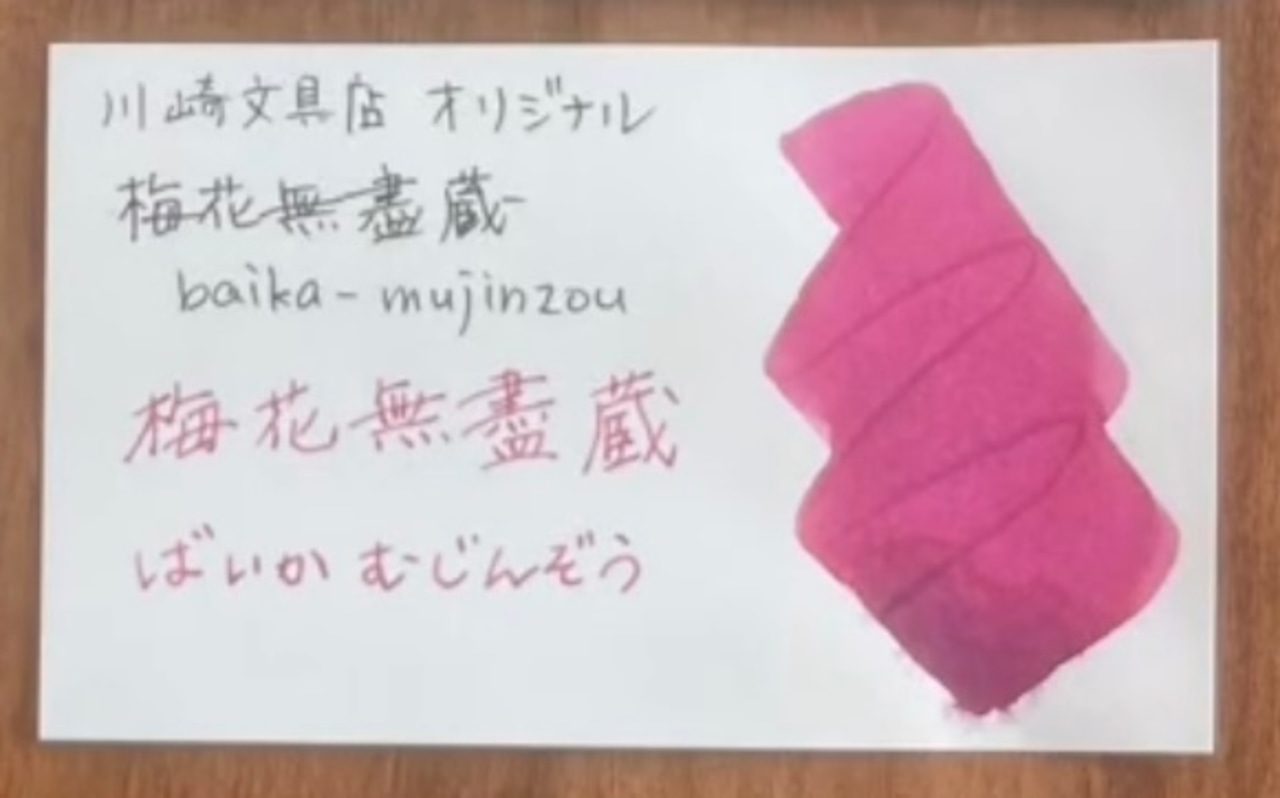 川崎文具店 オリジナル
梅花無盡蔵
baika-mujinzou
梅花無盡蔵
ばいか むじんぞう